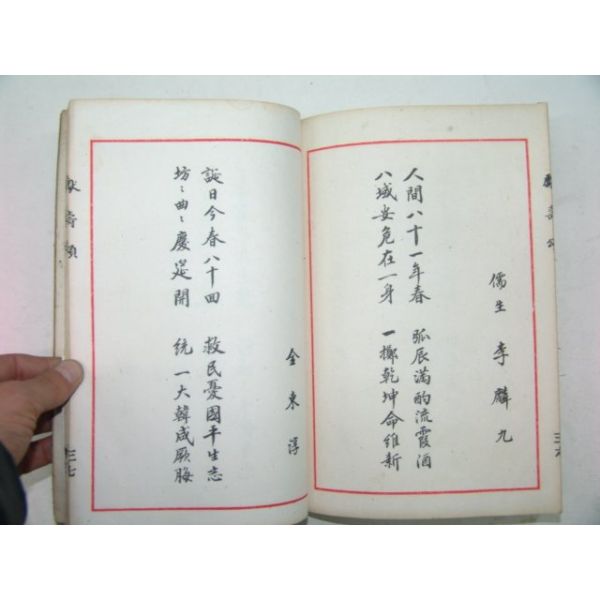 儒生 李麟九
人間八十一年春 弧辰滿酌流霞酒
八域安危在一身 一擲乾坤命維新
三六
金東淳
誕日今春八十回 救民憂國平生志
坊〻曲〻慶筵開 統一大韓咸願
獻壽頌
三七